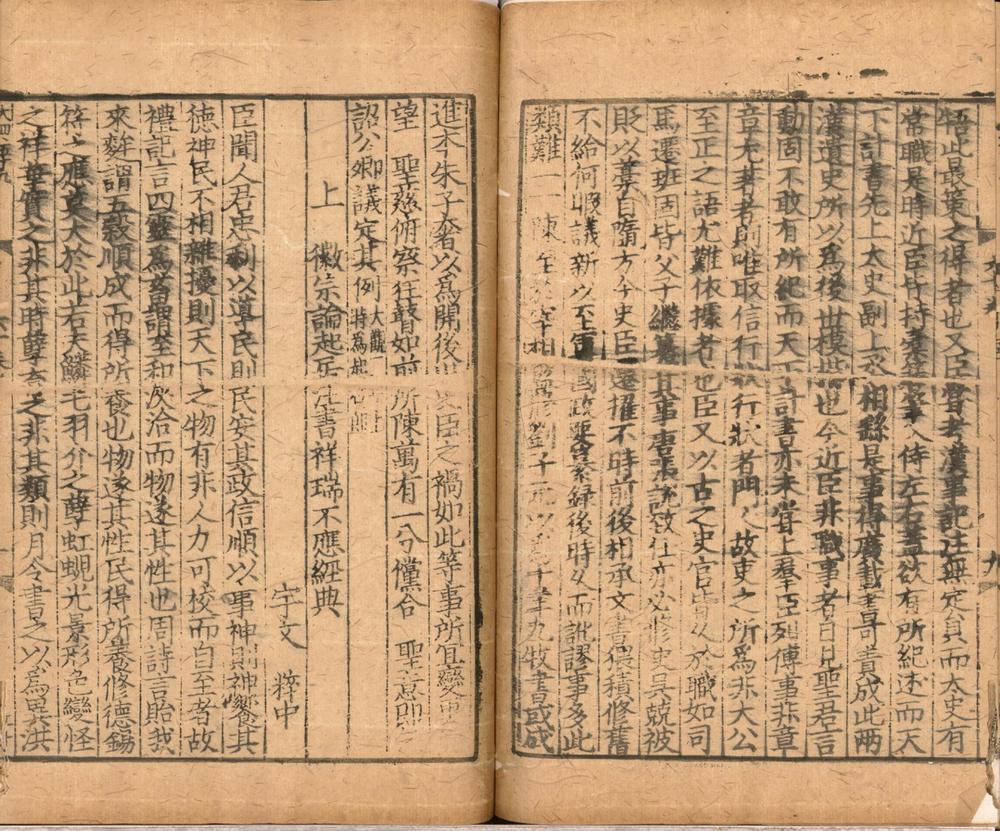 悟此最策之得者也又臣嘗考漢事記注無定員而太史有
常職是時近臣皆持橐簪筆入侍左右蓋欲有所紀述而天
下計書先上太史副上丞相縣是事得廣載書可責成此兩
漢遺史所以為後世模楷也今近臣非職事者日見聖君言
動固不敢有所紀而天下計書亦未嘗上羣臣列傳事非章
章尤著者則唯取信行狀行狀者門人故吏之所為非大公
至正之語尤難依據者也臣又以古之史官皆久於職如司
馬遷班固皆父子繼纂其事唐張說致仕亦必修史吳兢被
貶以藁自隨方今史臣遷擢不時前後相承文書猥積修舊
不給何暇議新以至
類難一一陳
牧書或成
進本朱子奢以為開後史臣之禍如此等事所宜變更
望 聖慈俯察狂瞽如前所陳萬有一分儻合 聖意即
詔公卿議定其例
上 徽宗論起居注書祥瑞不應經典
宇文 粹中
臣聞人君忠利以導民則民安其政信順以事神則神饗其
德神民不相雜擾則天下之物有非人力可校而自至者故
禮記言四靈為畜謂至和浹洽而物遂其性也周詩言貽我
來麰謂五穀順成而得所養也物遂其性民得所養修德錫
符之應莫大於此右夫鱗毛羽介之孽虹蜺光景形色變怪
之祥草實之非其時孽之非其類則月令書之以為異洪